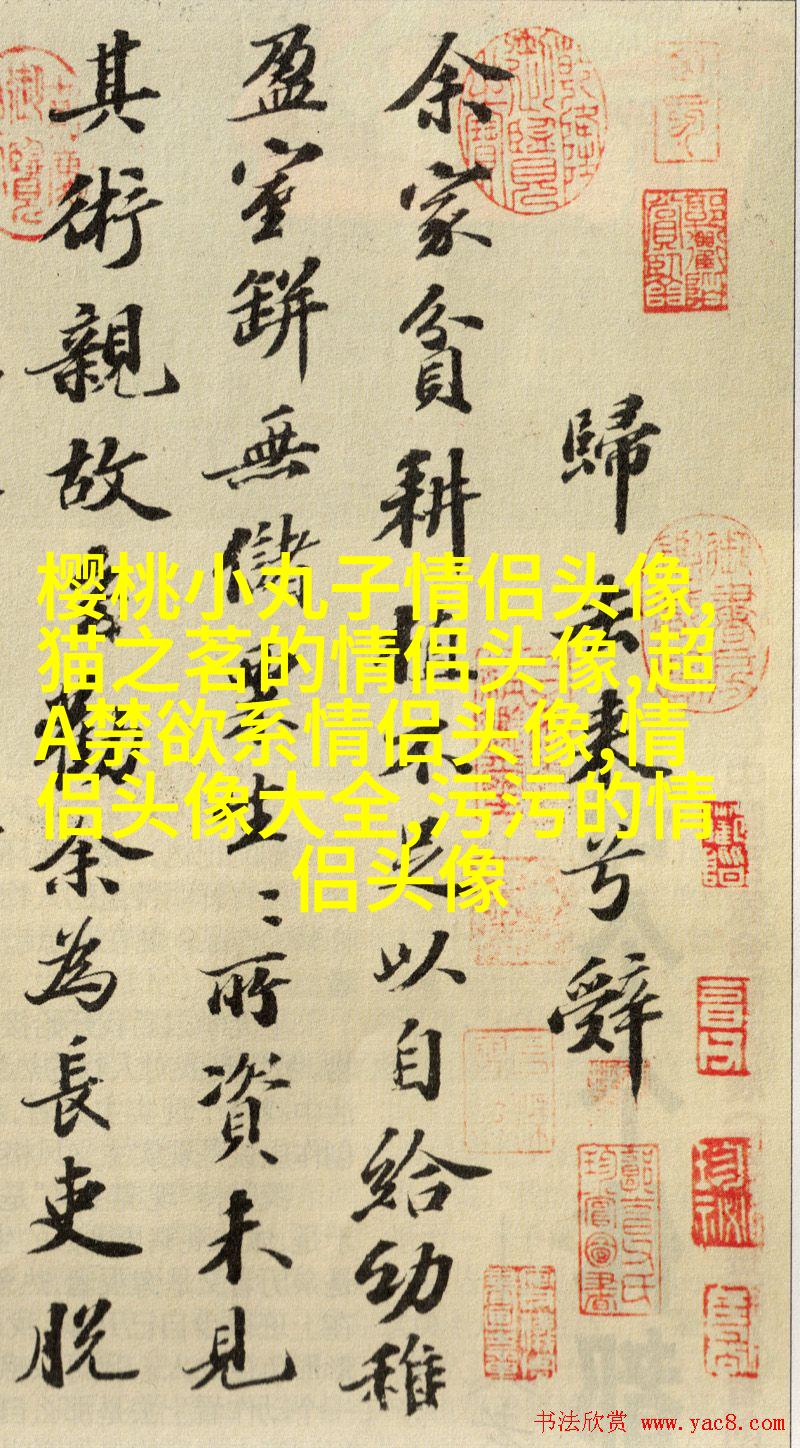 歸去来兮辭
余家貧耕植不足以自給幼稚
盈室缾無儲粟生〻所資未見
其術親故多勸余為長吏脱
樱桃小丸子情侣头像,
猫之茗的情侣头像,超
A禁欲系情侣头像,情
侣头像大全,污污的情
侣头像
书法欣赏 www.yac8.com